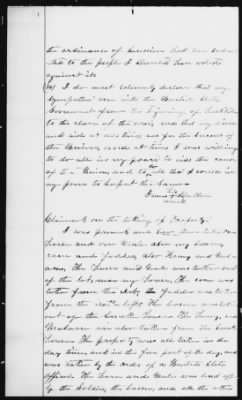 the ordinance of secession had been submit
ted to the people I should have voted
against it.
I do most solemnly declare that my
sympathies were with the United States
Government from the beginning of hostilities
to the close of the war, and that my desire
and aids at all times was for the success of
the Union, and at times I was willing
to do all in my power to aid the cause
of the Union, and to all that I could in
my power to support the same
his
mark
Claimant on the taking of Property.
I was present and saw
horse and one Mule also my bacon,
corn and fodder also Hams and
The horse and Mule was taken out
of the lot, near my house, the corn was
taken from the crib, the fodder was taken
from the loft, the bacon was taken
out of the Smoke house the Hams, and
was also taken from the Smoke
house the property was all taken in the
day time, and in the fore part of the day, and
was taken by the order of a United States
officer. The horse and Mule was led off
by the soldiers, the bacon, and all the other